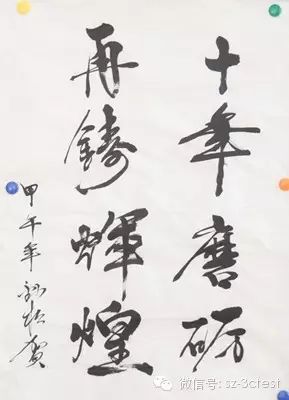 十年磨砺
再鑄輝煌
甲午年
賀
微信号: sz-3ctest